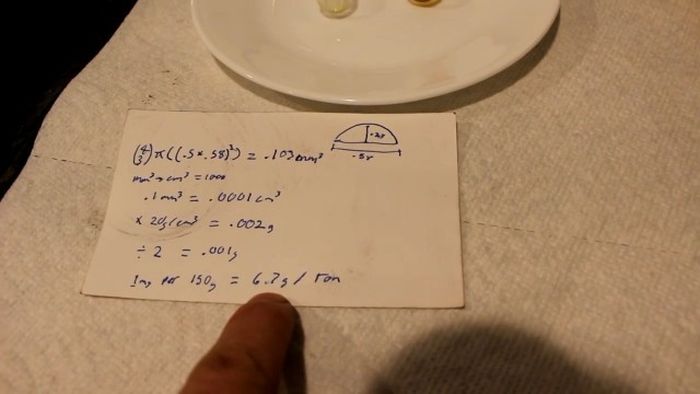 (4/3)π((.5*.58)³) = .103mm³
mm³→cm³ = 1000
.1mm³ = .0001cm³
x 20g/cm³ = .002g
÷ 2 = .001g
1mg per 150g = 6.7g/Ton